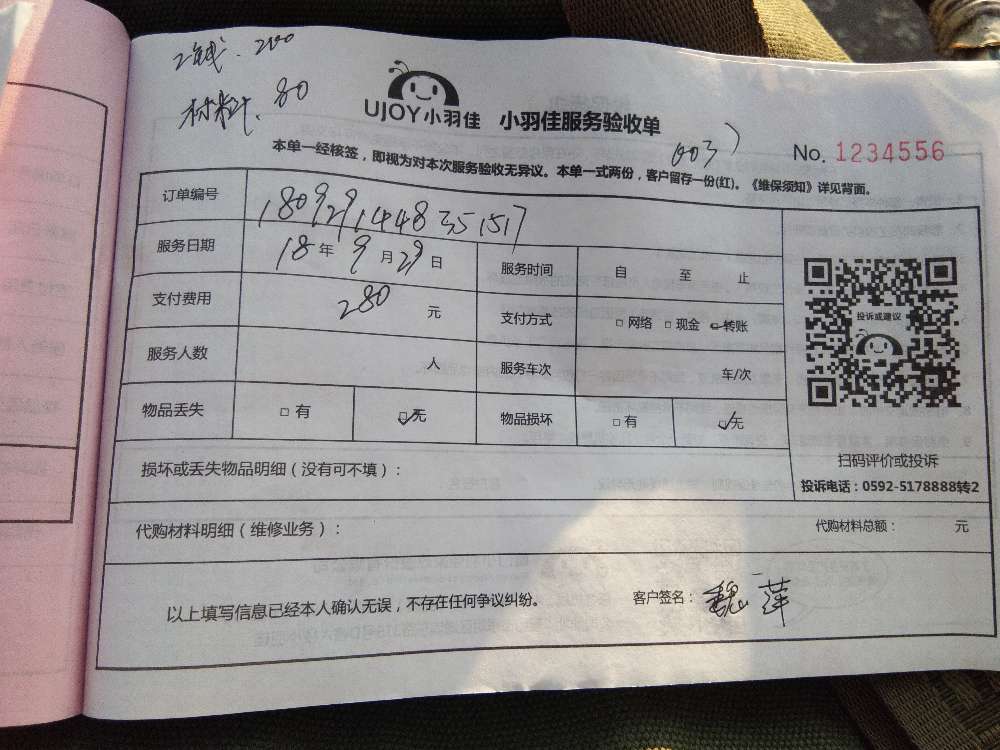 200
材料. 80
UJOY小羽佳 小羽佳服务验收单
(003)
No. 1234556
本单一经核签，即视为对本次服务验收无异议。本单一式两份，客户留存一份(红)。《维保须知》详见背面。
订单编号 1809291448351517
服务日期 18年9月29日 服务时间 自 至 止
支付费用 280 元 支付方式 □网络 □现金 □转账
服务人数 人 服务车次 车/次
物品丢失 □有 ☑无 物品损坏 □有 ☑无
投诉或建议
扫码评价或投诉
投诉电话：0592-5178888转2
损坏或丢失物品明细（没有可不填）：
代购材料明细（维修业务）： 代购材料总额： 元
以上填写信息已经本人确认无误，不存在任何争议纠纷。 客户签名：魏萍